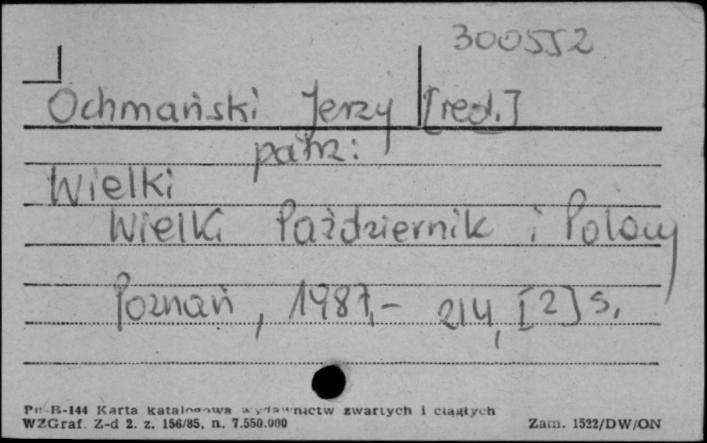 300552
Ochmański Jerzy [red.]
patrz:
Wielki
Wielki Październik i Polacy
Poznań, 1987,- 214, [2] s.
Pu-B-144 Karta katalogowa wydawnictw zwartych i ciągłych
WZGraf. Z-d 2. z. 156/85, n. 7.550.000 Zam. 1522/DW/ON